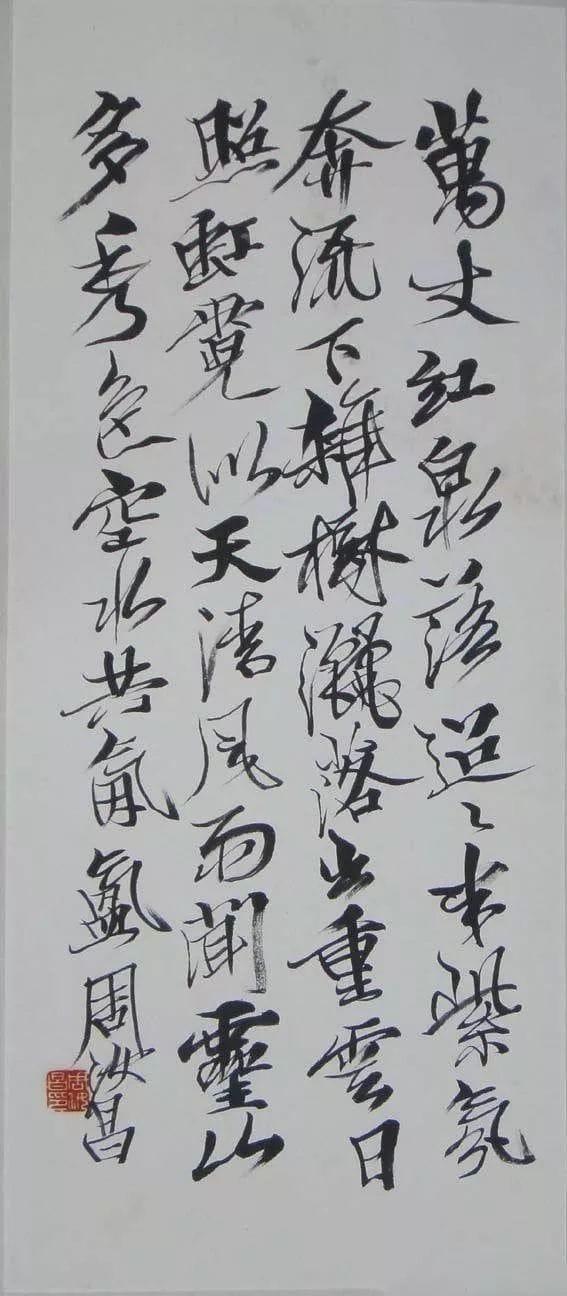 萬丈紅泉落迢〻半紫氛
奔流下雜樹灑落出重雲日
照虹霓似天清風雨聞靈山
多秀色空水共氤氳周汝昌
周汝昌印